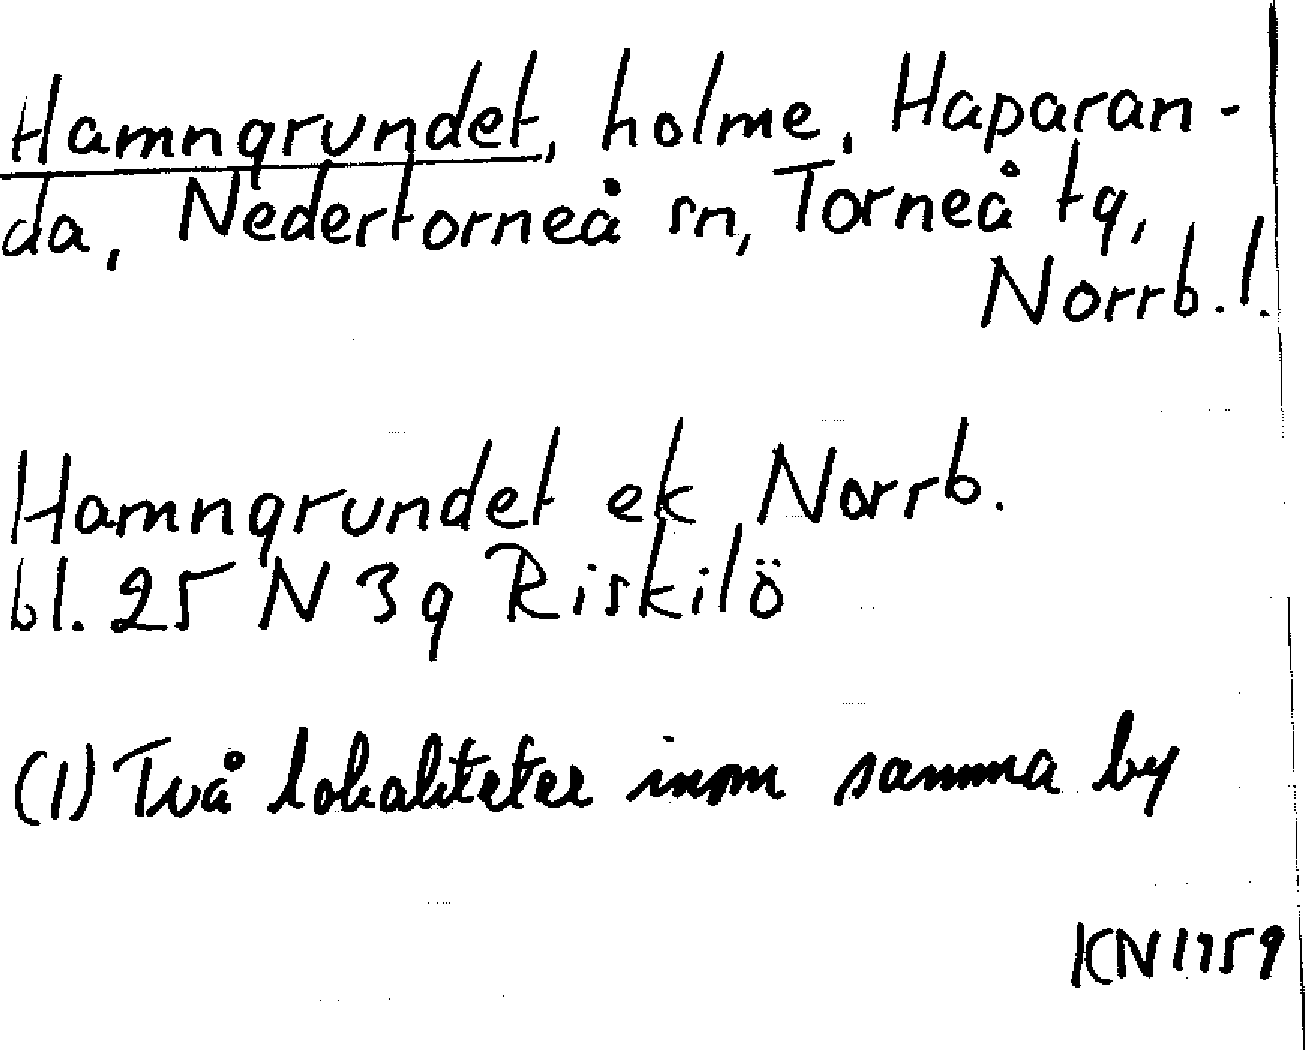 Hamngrundet, holme, Haparan-
da, Nedertorneå sn, Torneå tg,
Norrb. l.
Hamngrundet ek Norrb.
bl. 25 N 3g Riskilö
(1) Två lokaliteter inom samma by
KN 1959